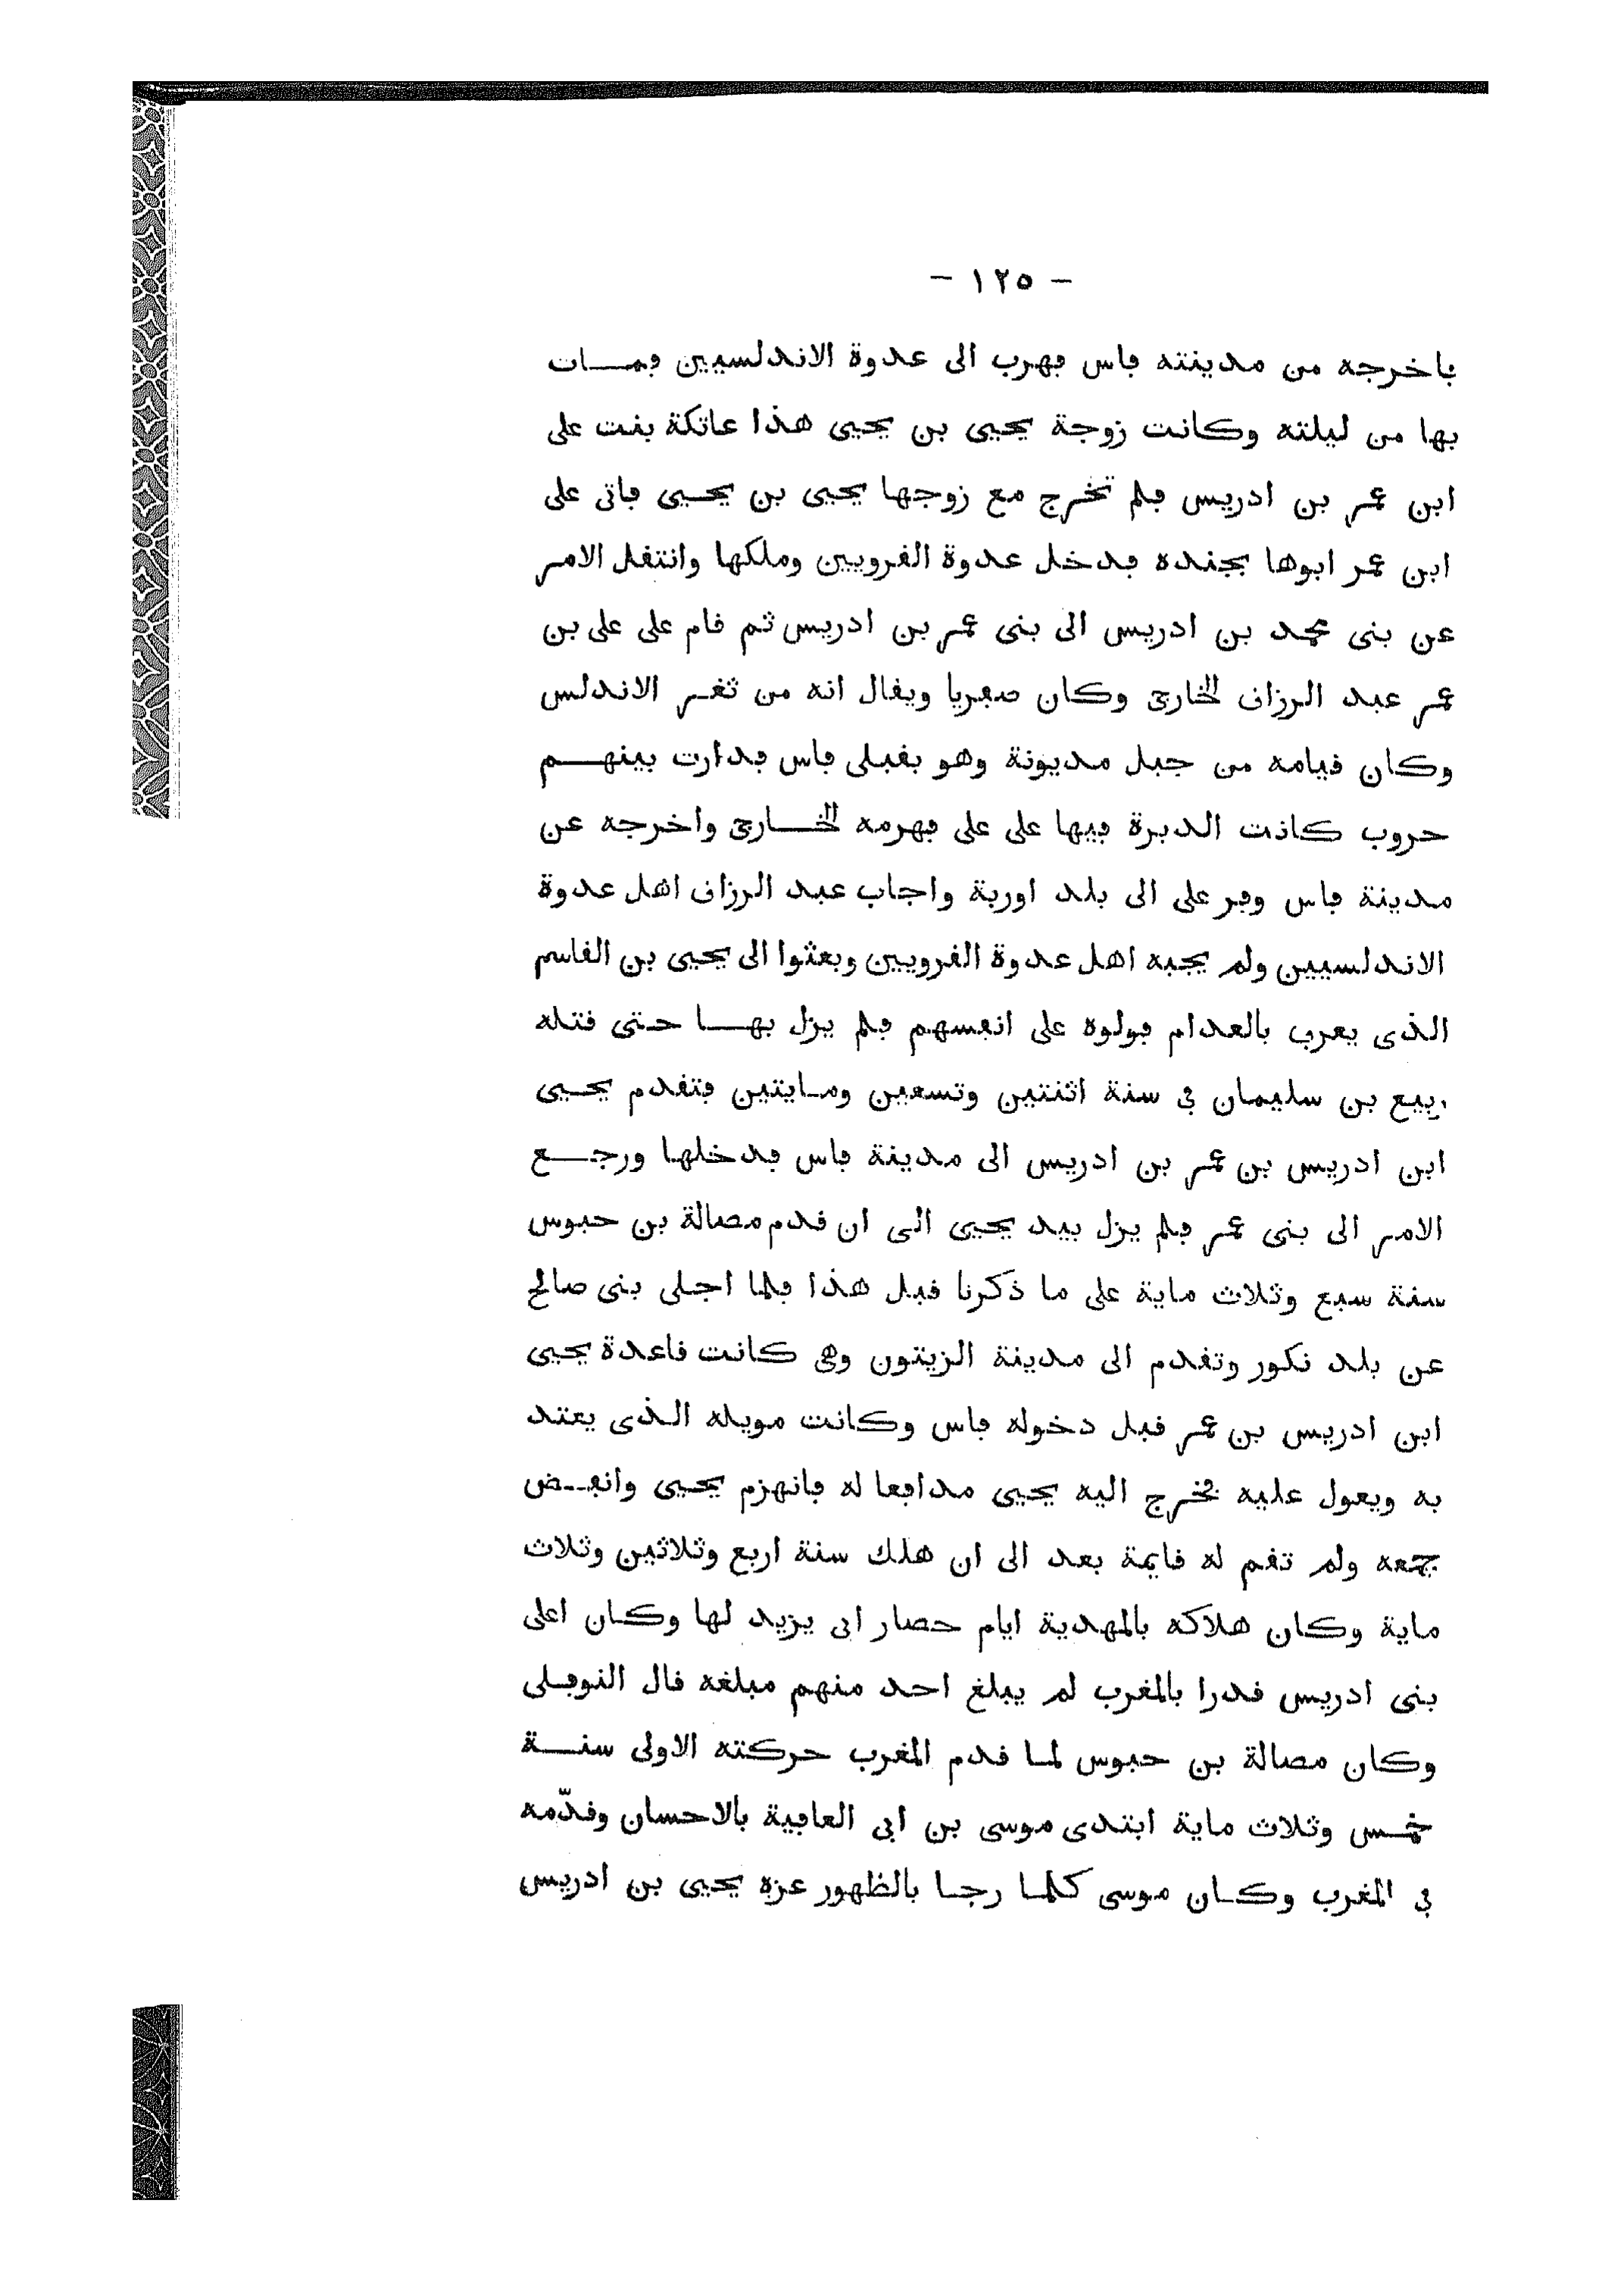 - ١٢٥ -
فاخرجه من مدينته فاس فهرب الى عدوة الاندلسيين فمات
بها من ليلته وكانت زوجة يحيى بن يحيى هذا عاتكة بنت على
ابن عمر بن ادريس فلم تخرج مع زوجها يحيى بن يحيى فاتى على
ابن عمر ابوها بجنده فدخل عدوة القرويين وملكها وانتقل الامر
عن بنى محمد بن ادريس الى بنى عمر بن ادريس ثم قام على على بن
عمر عبد الرزاق الخارجى وكان صفريا ويقال انه من ثغر الاندلس
وكان قيامه من جبل مديونة وهو بقبلى فاس فدارت بينهم
حروب كانت الدبرة فيها على على فهزمه الخارجى واخرجه عن
مدينة فاس وفر على الى بلد اوربة واجاب عبد الرزاق اهل عدوة
الاندلسيين ولم يجبه اهل عدوة القرويين وبعثوا الى يحيى بن القاسم
الذى يعرف بالعدام فولوه على انفسهم فلم يزل بها حتى قتله
ربيع بن سليمان فى سنة اثنتين وتسعين ومايتين فتقدم يحيى
ابن ادريس بن عمر بن ادريس الى مدينة فاس فدخلها ورجع
الامر الى بنى عمر فلم يزل بيد يحيى الى ان قدم مصالة بن حبوس
سنة سبع وثلاث ماية على ما ذكرنا قبل هذا فلما اجلى بنى صالح
عن بلد نكور وتقدم الى مدينة الزيتون وهى كانت قاعدة يحيى
ابن ادريس بن عمر قبل دخوله فاس وكانت مويله الذى يعتد
به ويعول عليه فخرج اليه يحيى مدافعا له فانهزم يحيى وانفض
جمعه ولم تقم له قايمة بعد الى ان هلك سنة اربع وثلاثين وثلاث
ماية وكان هلاكه بالمهدية ايام حصار ابى يزيد لها وكان اعلى
بنى ادريس قدرا بالمغرب لم يبلغ احد منهم مبلغه قال النوفلى
وكان مصالة بن حبوس لما قدم المغرب حركته الاولى سنة
خمس وثلاث ماية ابتدى موسى بن ابى العافية بالاحسان وقدّمه
فى المغرب وكان موسى كلما رجا بالظهور عزه يحيى بن ادريس